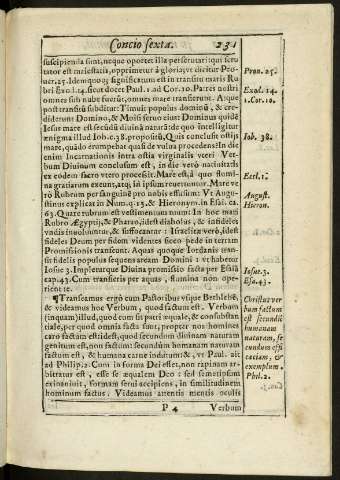 Concio sexta. 231
suscipienda sunt, neque oportet illa perscrutari: qui scru
tator est maiestatis, opprimetur à gloria, vt dicitur Prouer. 25.
Idem quoque significatum est in transitu maris Ru
bri Exo. 14. sicut docet Paul. 1. ad Cor. 10. Patres nostri
omnes sub nube fuerūt, omnes mare transierunt. Atque
post transitū subditur: Timuit populus dominū, & cre
diderunt Domino, & Moisi seruo eius: Dominus quidē
Iesus mare est secundū diuinā naturā: de quo intelligitur
ænigma illud Iob. 38. propositū, Quis conclusit ostijs
mare, quādo erumpebat quasi de vulua procedens? In die
enim Incarnationis intra ostia virginalis vteri Ver
bum Diuinum conclusum est, in die verò natiuitatis
ex eodem sacro vtero processit. Mare est, à quo flu
mina gratiarum exeunt, atque in ipsum reuertuntur. Mare ve
rò Rubrum per sanguinē pro nobis effusum: Vt Augu
stinus explicat in Num. q. 15. & Hieronym. in Esai. ca.
63. Quare rubrum est vestimentum tuum? In hoc mari
Rubro Ægyptij, & Pharao, idest diabolus, & infideles
vndis inuoluuntur, & suffocantur: Israelitæ verò, idest
fideles Deum per fidem videntes sicco pede in terram
Promissionis transeunt. Aquas quoque Iordanis tran
sit fidelis populus sequens arcam Domini: vt habetur
Iosue 3. Impleturque Diuina promissio facta per Esaiā
cap. 43. Cum transieris per aquas, flumina non ope
rient te.
¶ Transeamus ergò cum Pastoribus vsque Bethleē,
& videamus hoc Verbum, quod factum est. Verbum
(inquam) illud, quod cum sit patri coæquale, & consubstan
tiale, per quod omnia facta sunt, propter nos homines
caro factum est: idest, quod secundum diuinam naturam
genitum est, non factum: secundùm humanam naturam
factum est, & humana carne inditum: &, vt Paul. ait
ad Philip. 2. Cum in forma Dei esset, non rapinam ar
bitratus est, esse se æqualem Deo: sed semetipsum
exinaniuit, formam serui accipiens, in similitudinem
hominum factus. Videamus attentis mentis oculis
P 4 Verbum
Prou. 25.
Exod. 14.
1. Cor. 10.
Iob. 38.
Eccl. 1.
August.
Hieron.
Iosue. 3.
Esa. 43.
Christus ver
bum factum
est secundū
humanam
naturam, se
cundum effi
caciam, &
exemplum.
Phil. 2.